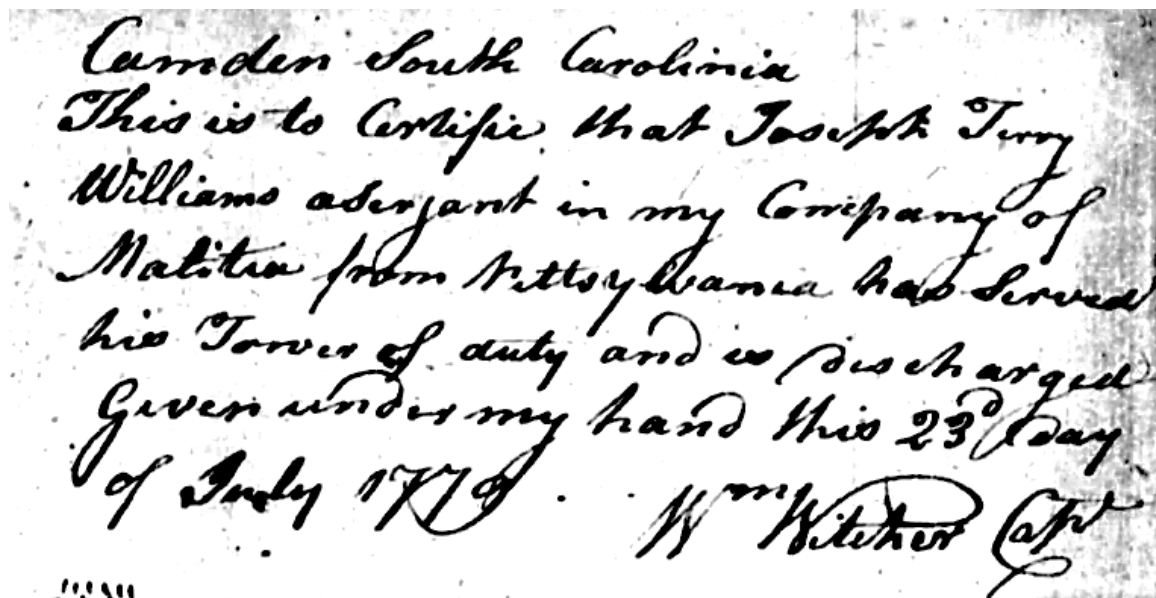 Camden South Carolinia
This is to Certifie that Joseph Terry
Williams a Serjant in my Company of
Malitia from Pittsylvania has Served
his Tower of duty and is discharged
Given under my hand this 23d day
of July 1779
Wm Witcher Capt